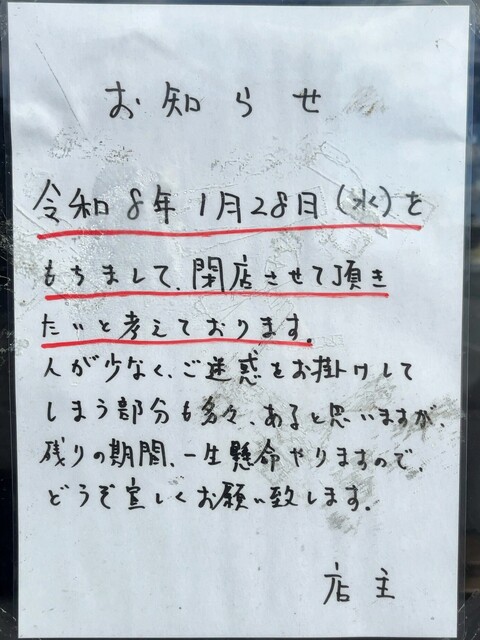 お知らせ
令和8年1月28日(水)を
もちまして、閉店させて頂き
たいと考えております。
人が少なく、ご迷惑をお掛けして
しまう部分も多々、あると思いますが、
残りの期間、一生懸命やりますので、
どうぞ宜しくお願い致します。
店主